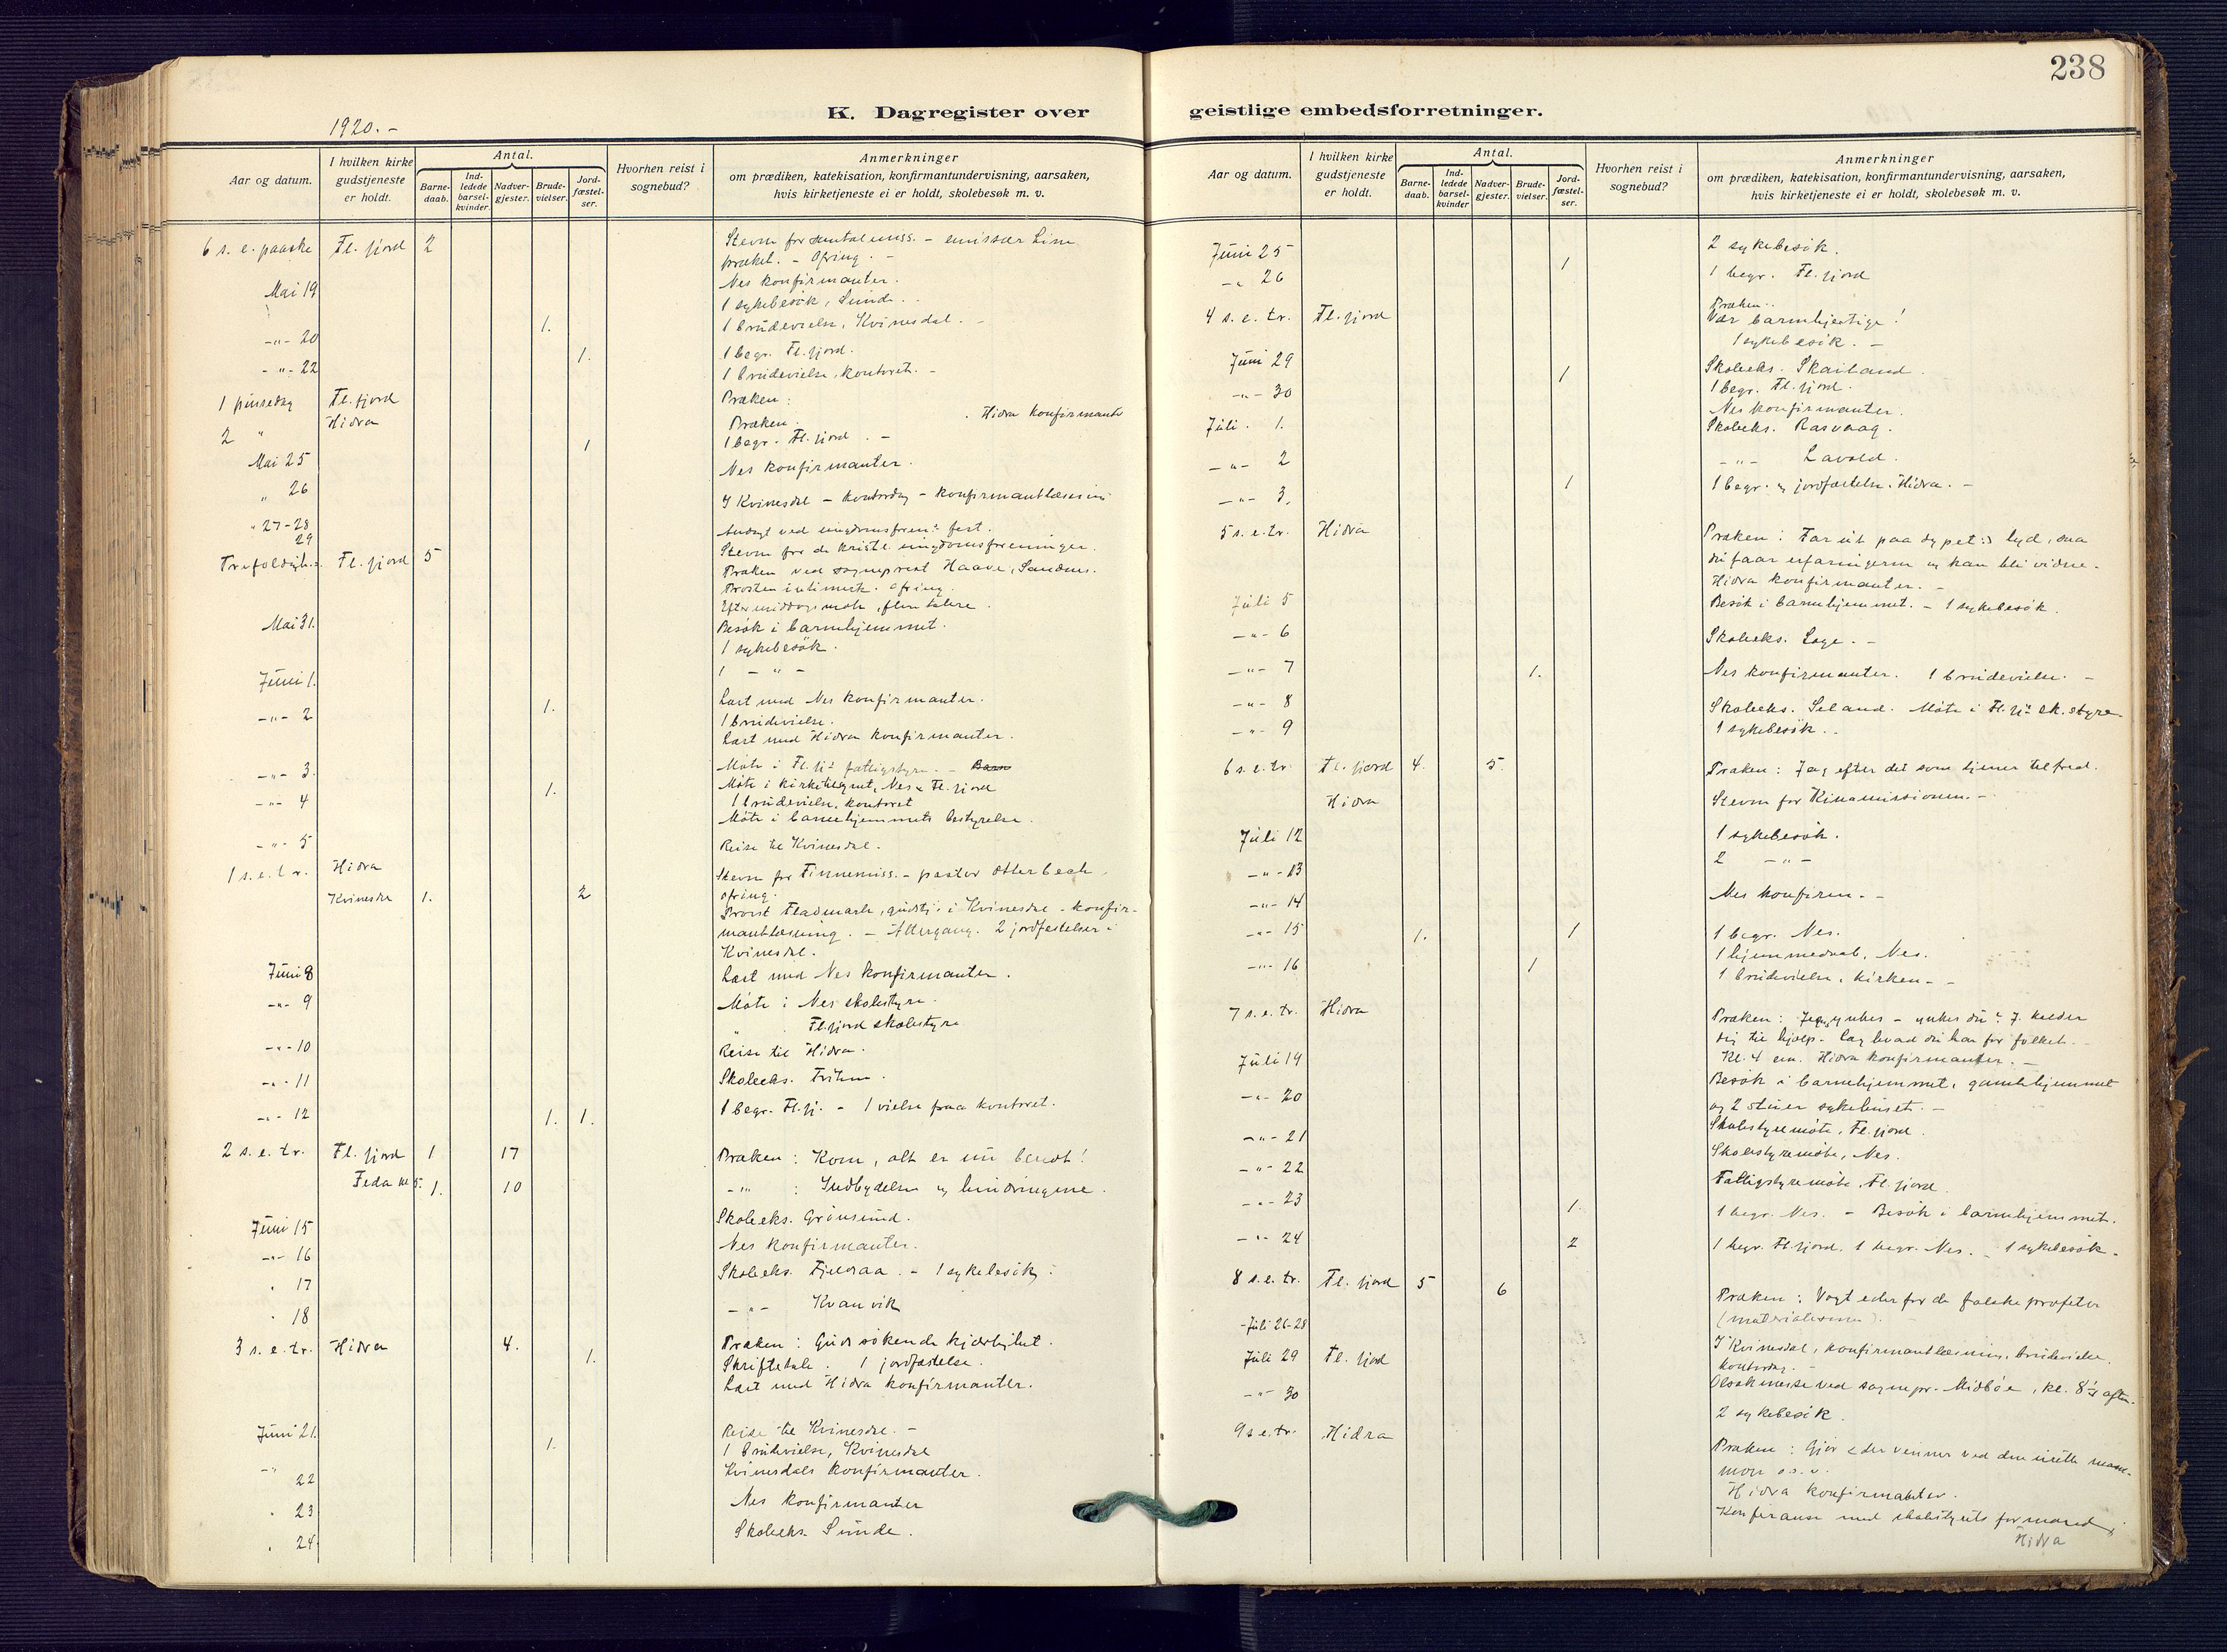 238
K. Dagregister over geistlige embedsforretninger.
1920. -
Aar og datum.
I hvilken kirke gudstjeneste er holdt.
Antal.
Barnedaab.
Indledede barselkvinder.
Nadvergjester.
Brudevielser.
Jordfæstelser.
Hvorhen reist i sognebud?
Anmerkninger
om prædiken, katekisation, konfirmantundervisning, aarsaken,
hvis kirketjeneste ei er holdt, skolebesøk m. v.
6 s. e. paaske Fl. fjord 2 Stevne for santalmiss. - emissær Lim
præket. - Ofring. -
Mai 19 Nes konfirmanter.
1 sykebesök, Sunde.
-"- 20 1. 1 brudevielse, Kvinesdal. -
-"- 22 1. 1 begr. Fl. fjord.
1 brudevielse, kontoret. -
1 pinsedag Fl. fjord Præken:
2 " Hidra Præken. Hidra konfirmanter
Mai 25 1 1 begr. Fl. fjord. -
" 26 Nes konfirmanter.
" 27-28 I Kvinesdal - kontordag - konfirmantlæsning
29
Stevne for de kristl. ungdomsforeninger.
Trefoldigh.s. Fl. fjord 5 Præken ved sogneprest Haave, Sandnes.
Ofring.
Eftermiddagsmøte, flere talere.
Mai 31. Besök i barnehjemmet.
1 sykebesök.
Juni 1. 1 - " -
-"- 2 1. Læst med Nes konfirmanter.
1 brudevielse.
Læst med Hidra konfirmanter.
-"- 3. Møte i Fl. fj.s fattigstyre. -
-"- 4 1. Møte i kirketilsynet, Nes & Fl. fjord
1 brudevielse, kontoret
Møte i barnehjemmets bestyrelse.
-"- 5 Reise til Kvinesdal.
1 s. e. tr. Hidra Stevne for Finnemiss. - pastor Otterbech.
ofring.
Kvinesdal 1. 2 Provst Fladmark, gudstj. i Kvinesdal - konfir-
mantlæsning. - Altergang. 2 jordfestelser i
Kvinesdal.
Juni 8 Læst med Nes konfirmanter.
-"- 9 Møte i Nes skolestyre.
" Fl. fjord skolestyre
-"- 10 Reise til Hidra.
-"- 11 Skoleeks.
-"- 12 1. 1. 1 begr. Fl. fj. - 1 vielse paa kontoret.
2 s. e. tr. Fl. fjord 1 17 Præken: Kom, alt er nu beredt!
Feda kl. 5. 1. 10 -"- : Indbydelsen og hindringene.
Juni 15 Skoleeks. Grönsund.
-"- 16 Nes konfirmanter.
" 17 Skoleeks. Fjeldsaa. - 1 sykebesök.
" 18 -"- Kvanvik
3 s. e. tr. Hidra 4. 1. Præken: Guds søkende kjærlighet.
Skriftetale. 1 jordfæstelse.
Læst med Hidra konfirmanter.
Juni 21. 1. Reise til Kvinesdal. -
1 brudevielse, Kvinesdal
-"- 22 Kvinesdals konfirmanter.
" 23 Nes konfirmanter
" 24 Skoleeks. Sunde.
Aar og datum.
I hvilken kirke gudstjeneste er holdt.
Antal.
Barnedaab.
Indledede barselkvinder
Nadvergjester.
Brudevielser.
Jordfæstelser.
Hvorhen reist i sognebud?
Anmerkninger
om prædiken, katekisation, konfirmantundervisning, aarsaken,
hvis kirketjeneste ei er holdt, skolebesøk m. v.
Juni 25 2 sykebesök.
-"- 26 1 1 begr. Fl. fjord
4 s. e. tr. Fl. fjord Præken.
Vær barmhjertige!
1 sykebesök. -
Juni 29 Skoleeks. Skailand.
-"- 30 1 1 begr. Fl. fjord.
Nes konfirmanter.
Juli 1. Skoleeks. Rasvaag.
-"- 2 -"- Lavold.
-"- 3. 1 1 begr. og jordfæstelse. Hidra. -
5 s. e. tr. Hidra Præken: Far ut paa dypet: lyd, saa
du faar erfaringerne og kan bli vidne.
Hidra konfirmanter. -
Juli 5 Besök i barnehjemmet. - 1 sykebesök.
-"- 6 Skoleeks. Loge. -
-"- 7 1. Nes konfirmanter. 1 brudevielse. -
-"- 8 Skoleeks. Seland. Møte i Fl. fj.s sk. styre.
-"- 9 1 sykebesök.
6 s. e. tr. Fl. fjord 4. 5. Præken: Jag efter det som tjener til fred.
Hidra Stevne for Kinamissionen. -
Juli 12 1 sykebesök.
-"- 13 2 -"-
-"- 14 Nes konfirm. -
-"- 15 1. 1 1 begr. Nes.
1 hjemmedaab, Nes.
-"- 16 1 1 brudevielse, kirken. -
7 s. e. tr. Hidra Præken: Jeg ynkes - ynkes du? J. kalder
dig til hjælp. Læg hvad du har for folket.
Kl. 4 em. Hidra konfirmanter. -
Juli 19 Besök i barnehjemmet, gamlehjemmet
og 2 stuer sykehuset. -
-"- 20 Skolestyremøte, Fl. fjord.
-"- 21 Skolestyremøte, Nes.
-"- 22 Fattigstyremøte, Fl. fjord.
-"- 23 1. 1 begr. Nes. - Besök i barnehjemmet.
-"- 24 2 1 begr. Fl. fjord. 1 begr. Nes. - 1 sykebesök.
8 s. e. tr. Fl. fjord 5 6 Præken: Vogt eder for de falske profeter
(materialismen).
Juli 26-28 I Kvinesdal, konfirmantlæsning, brudevielse,
kontordag. -
Juli 29 Fl. fjord Olsokmesse ved sognepr. Midböe, kl. 8½ aften.
-"- 30 2 sykebesök.
9 s. e. tr. Hidra Præken: Gjör eder venner ved den urette mam-
mon o. s. v.
Hidra konfirmanter.
Konferanse med skolestyrets formand,
Hidra